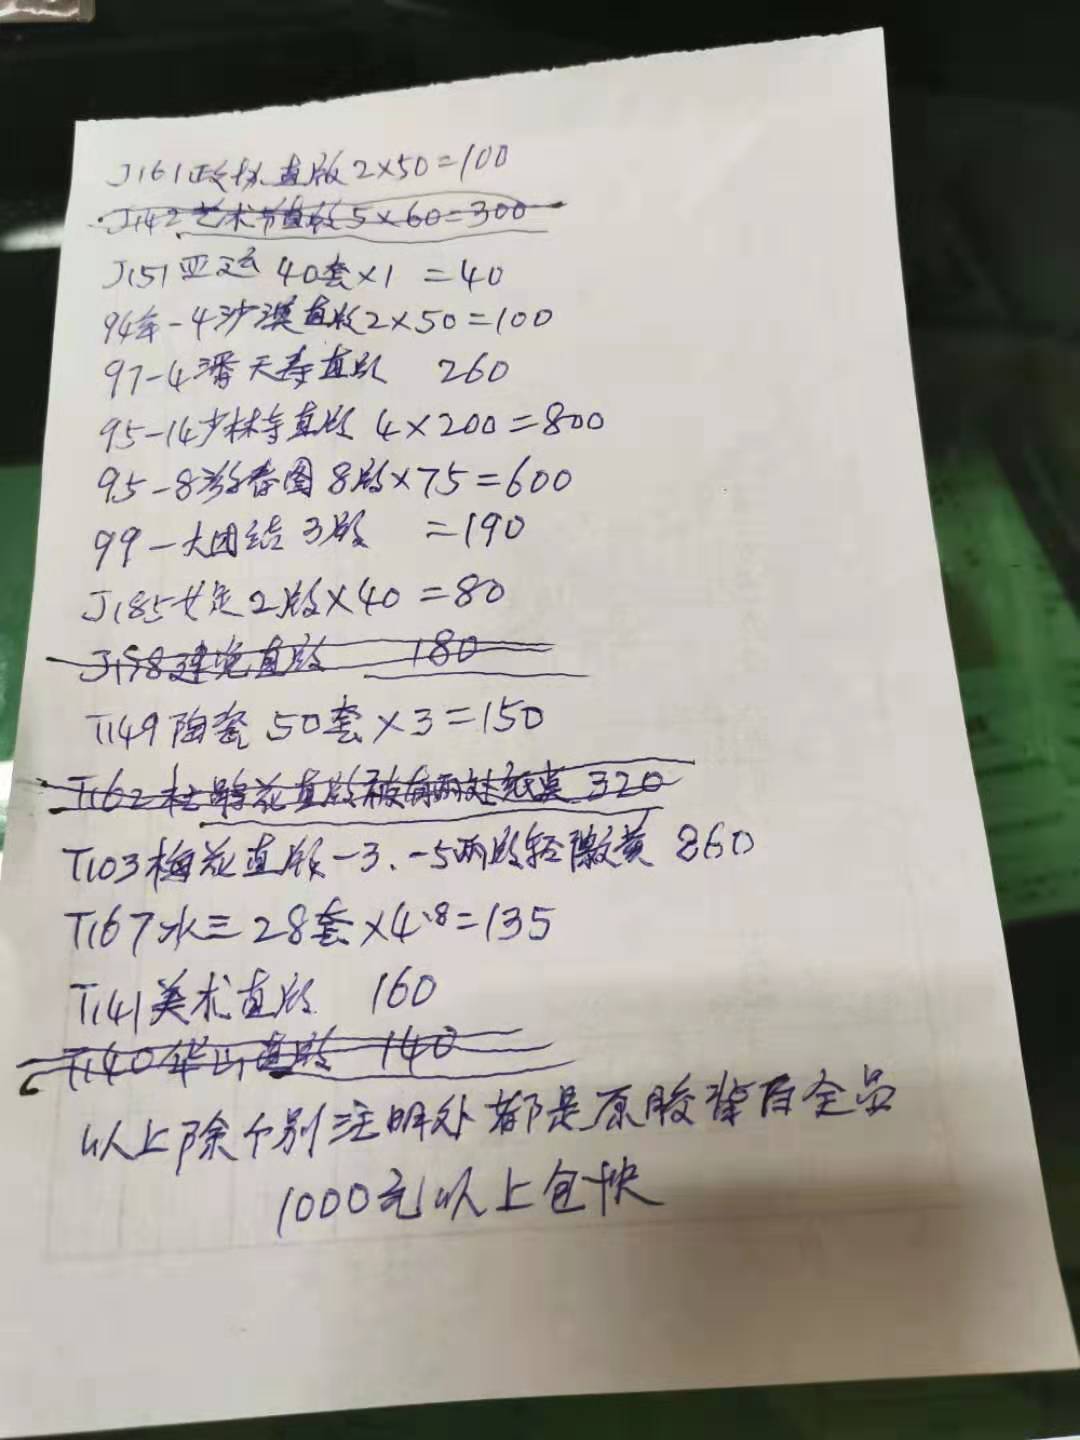 J161政协直版2×50=100
J142艺术节直版5×60=300
J151亚运 40套×1=40
94年-4沙漠直版2×50=100
97-4潘天寿直版 260
95-14少林寺直版 4×200=800
95-8游春图8版×75=600
99-大团结3版 =190
J185女足2版×40=80
J158建党直版 180
T149陶瓷 50套×3=150
T162杜鹃花直版 320
T103梅花直版-3.-5两版轻微黄 860
T167水三28套×4.8=135
T141美术直版 160
T140华山直版 140
以上除个别注明处都是原胶背白全品
1000元以上包快